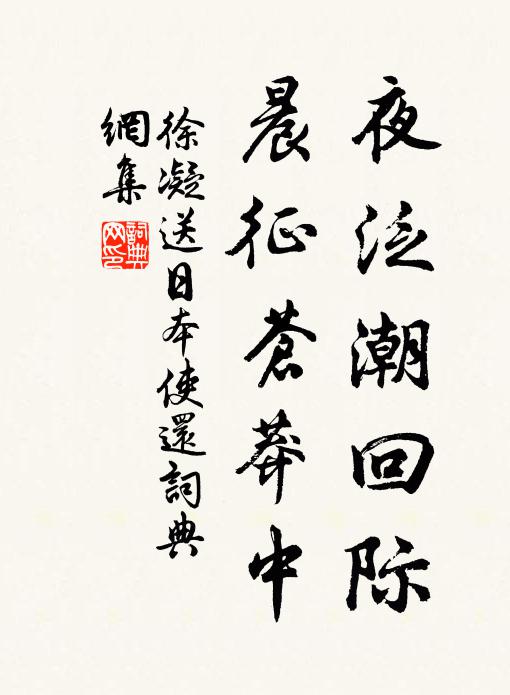 夜泛潮回际
晨征蒼莽中
徐凝送日本使還詞典
網集
詞典
网印